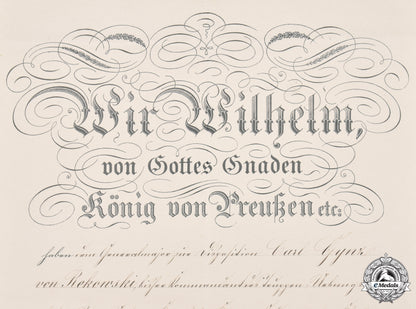 Wir Wilhelm,
von Gottes Gnaden
König von Preußen etc:
haben dem Generalmajor zur Disposition Carl
von Rekowski, bisher Kommandeur Truppen
eMedals